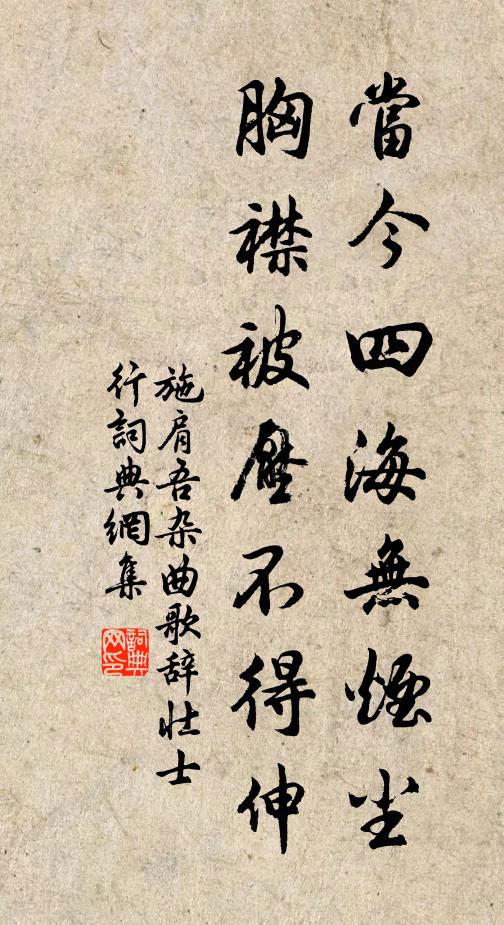 當今四海無煙尘
胸襟被壓不得伸
施肩吾杂曲歌辞壮士
行詞典網集
詞典
网印